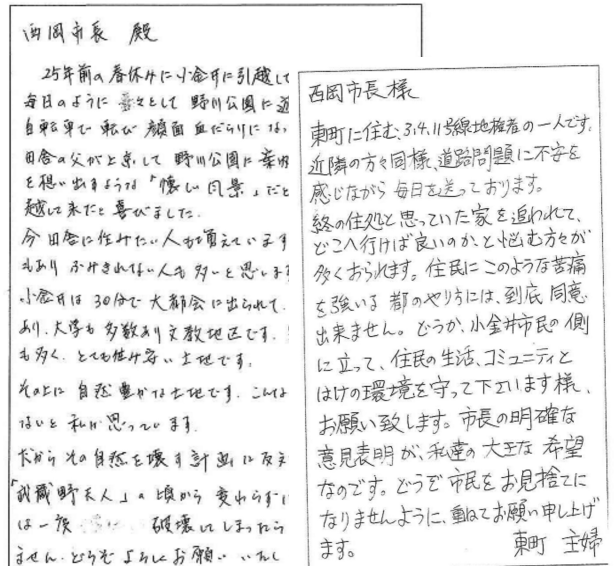 西岡市長 殿
25年前の春休みに小金井に引越して
毎日のように 喜々として 野川公園に
自転車で転び 顔面血だらけになっ
田舎の父が上京して 野川公園に案内
を想い出すような「懐しい風景」だと
越して来たと喜びました。
今田舎に住みたい人も増えています
もあり ふみきれない人も多いと思います
小金井は30分で大都会に出られて、
あり、大学も多数あり文教地区です。
も多く、とても住み安い土地です。
その上に自然豊かな土地です。こんな
ないと私が思っています。
だからその自然を壊す計画に反対
「武蔵野夫人」の頃から変わらず
は一度 破壊してしまったら
ません。どうぞよろしくお願いいたし
西岡市長様
東町に住む、3.4.11号線地権者の一人です。
近隣の方々同様、道路問題に不安を
感じながら毎日を送っております。
終の住処と思っていた家を追われて、
どこへ行けば良いのか、と悩む方々が
多くおられます。住民にこのような苦痛
を強いる都のやり方には、到底同意
出来ません。どうか、小金井市民の側
に立って、住民の生活、コミュニティと
はけの環境を守って下さいます様、
お願い致します。市長の明確な
意見表明が、私達の大きな希望
なのです。どうぞ市民をお見捨てに
なりませんように、重ねてお願い申し上げ
ます。
東町 主婦